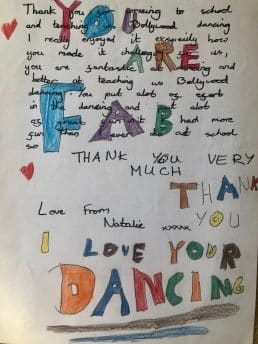 Thank you for coming to school
and teaching us Bollywood dancing
I really enjoyed it exspecily how
you made it challenging for us,
you are fantastic at dancing and
better at teaching us Bollywood
dancing. You put alot of esort
in the dancing and alot
as had more
fun than ever at school
so
YOU
ARE
FAB
THANK YOU VERY
MUCH
THANK
YOU
Love From
Natalie xxxxx
I LOVE YOUR
DANCING